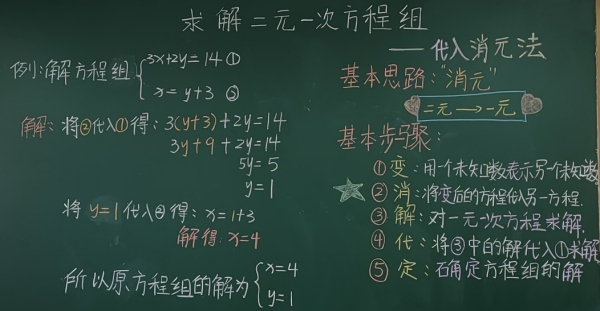 求解二元一次方程组
——代入消元法
例:解方程组
3x+2y=14 ①
x=y+3 ②
解:将②代入①得:3(y+3)+2y=14
3y+9+2y=14
5y=5
y=1
将 y=1 代入②得:x=1+3
解得:x=4
所以原方程组的解为
x=4
y=1
基本思路:“消元”
二元→一元
基本步骤:
①变:用一个未知数表示另一个未知数
②消:将变后的方程代入另一方程.
③解:对一元一次方程求解.
④代:将③中的解代入①求解
⑤定:确定方程组的解